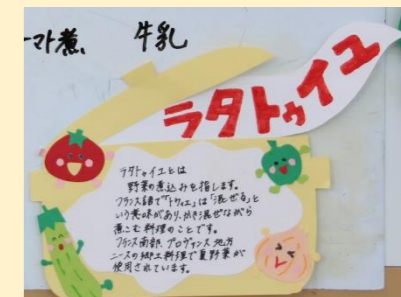 マト煮
牛乳
ラタトゥイユ
ラタトゥイユとは
野菜の煮込みを指します。
フランス語で「トゥイユ」は「混ぜる」と
いう意味があり、かき混ぜながら
煮こむ料理のことです。
フランス南部、プロヴァンス地方
ニースの郷土料理で夏野菜が
使用されています。